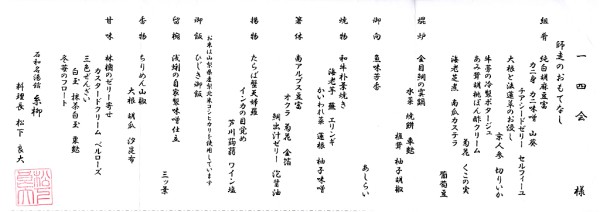 一四会 様
師走のおもてなし
組肴 純白胡麻豆富
カニ身 カニ味噌 山葵
チアシードゼリー セルフィーユ
大根と法蓮草のお浸し
京人参 切りいか
牛蒡の冷製ポタージュ
菊花 くこの実
あみ茸胡桃ぽん酢クリーム
海老芝煮 南瓜カステラ
葡萄豆
煖炉 金目鯛の雲鍋
水菜 焼餅 車麩
椎茸 柚子胡椒
御向 魚味芳香
あしらい
焼物 和牛朴葉焼き
海老芋 葱 エリンギ
かいわれ菜 蓮根 柚子味噌
箸休 南アルプス豆富
オクラ 菊花 金箔
鯛出汁ゼリー 泡醤油
揚物 たらば蟹天婦羅
インカの目覚め
芦川蒟蒻 ワイン塩
御飯 ひじき御飯
お米は山梨県産梨北米コシヒカリを使用しています
留椀 浅蜊の自家製味噌仕立
三ッ葉
香物 ちりめん山椒
大根 胡瓜 汐昆布
甘味 林檎のゼリー寄せ
カスタードクリーム ベルローズ
三色ぜんざい
白玉 抹茶白玉 栗麩
冬苺のフロート
石和名湯館 糸柳
料理長 松下良大